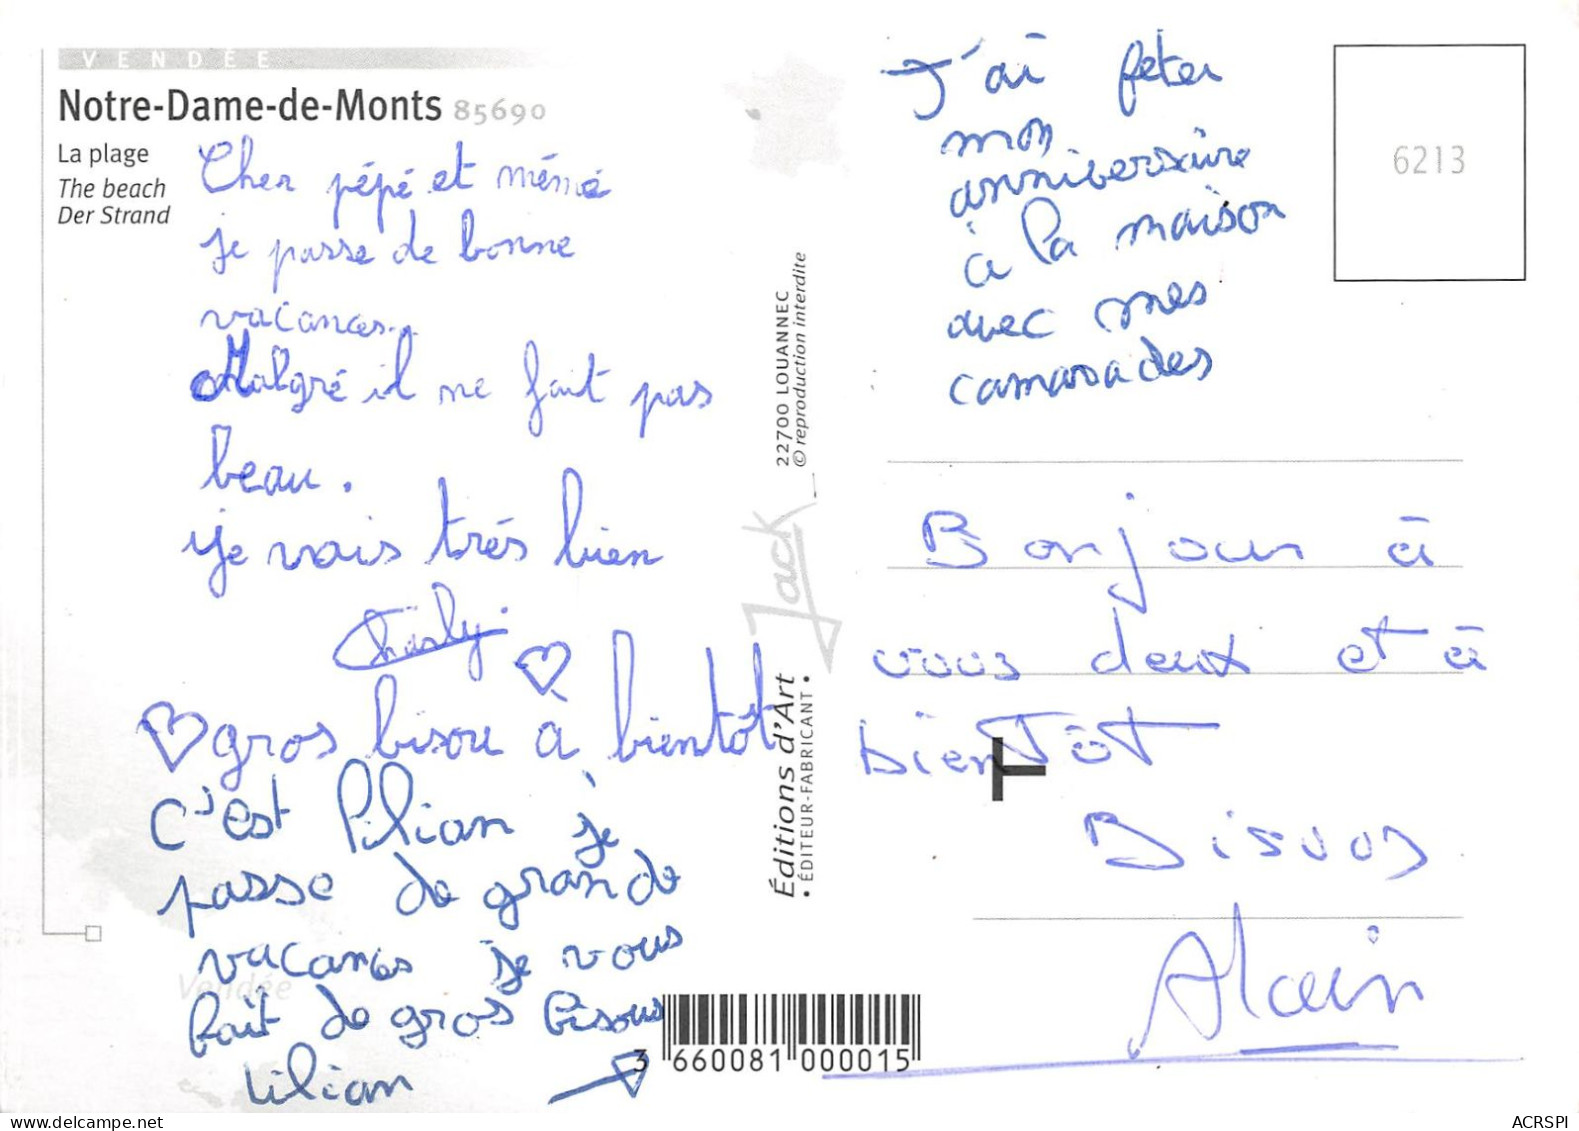 VENDÉE
Notre-Dame-de-Monts 85690
La plage
The beach
Der Strand
Cher pépé et mémé
je passe de bonne
vacances..
Malgré il ne fait pas
beau.
je vais trés bien
Charly
gros bisou à bientôt
c'est lilian je
passe de grande
vacances je vous
fait de gros bisous
lilian
Vendée
J'ai fêter
mon
anniversaire
à la maison
avec mes
camarades
6213
22700 LOUANNEC
© reproduction interdite
Jack
Éditions d'Art
• ÉDITEUR-FABRICANT •
Bonjour à
vous deux et à
bientôt
Bisous
Alain
3 660081 000015
ACRSPI